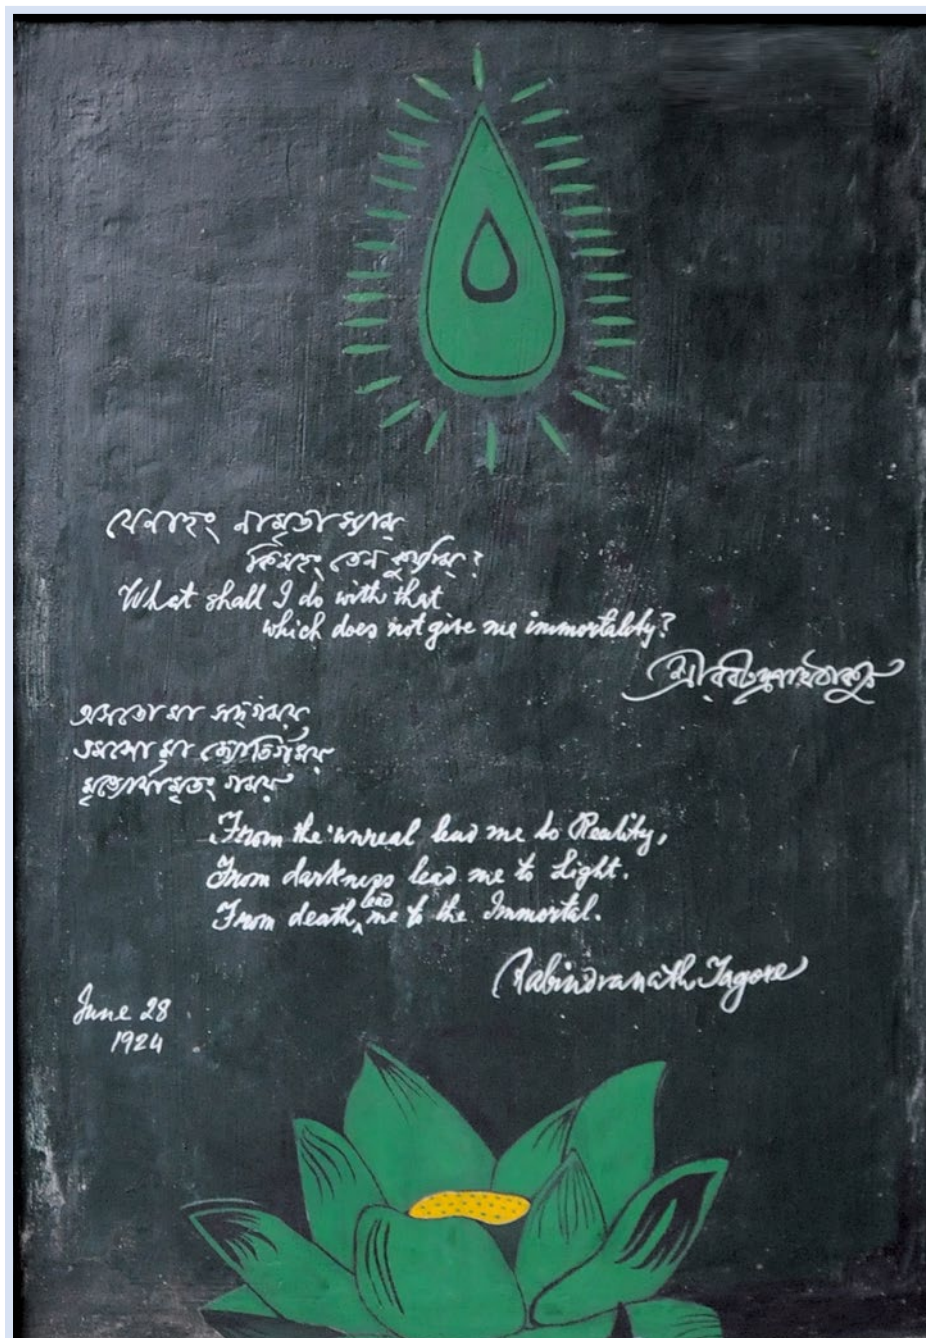 যেনাহং নামৃতা স্যাম্
কিমহং তেন কুর্য্যাম্?
What shall I do with that
which does not give me immortality?
শ্রীরবীন্দ্রনাথ ঠাকুর
অসতো মা সদ্গময়
তমসো মা জ্যোতির্গময়
মৃত্যোর্মামৃতং গময়
From the unreal lead me to Reality,
From darkness lead me to Light.
From death, lead me to the Immortal.
Rabindranath Tagore
June 28
1924